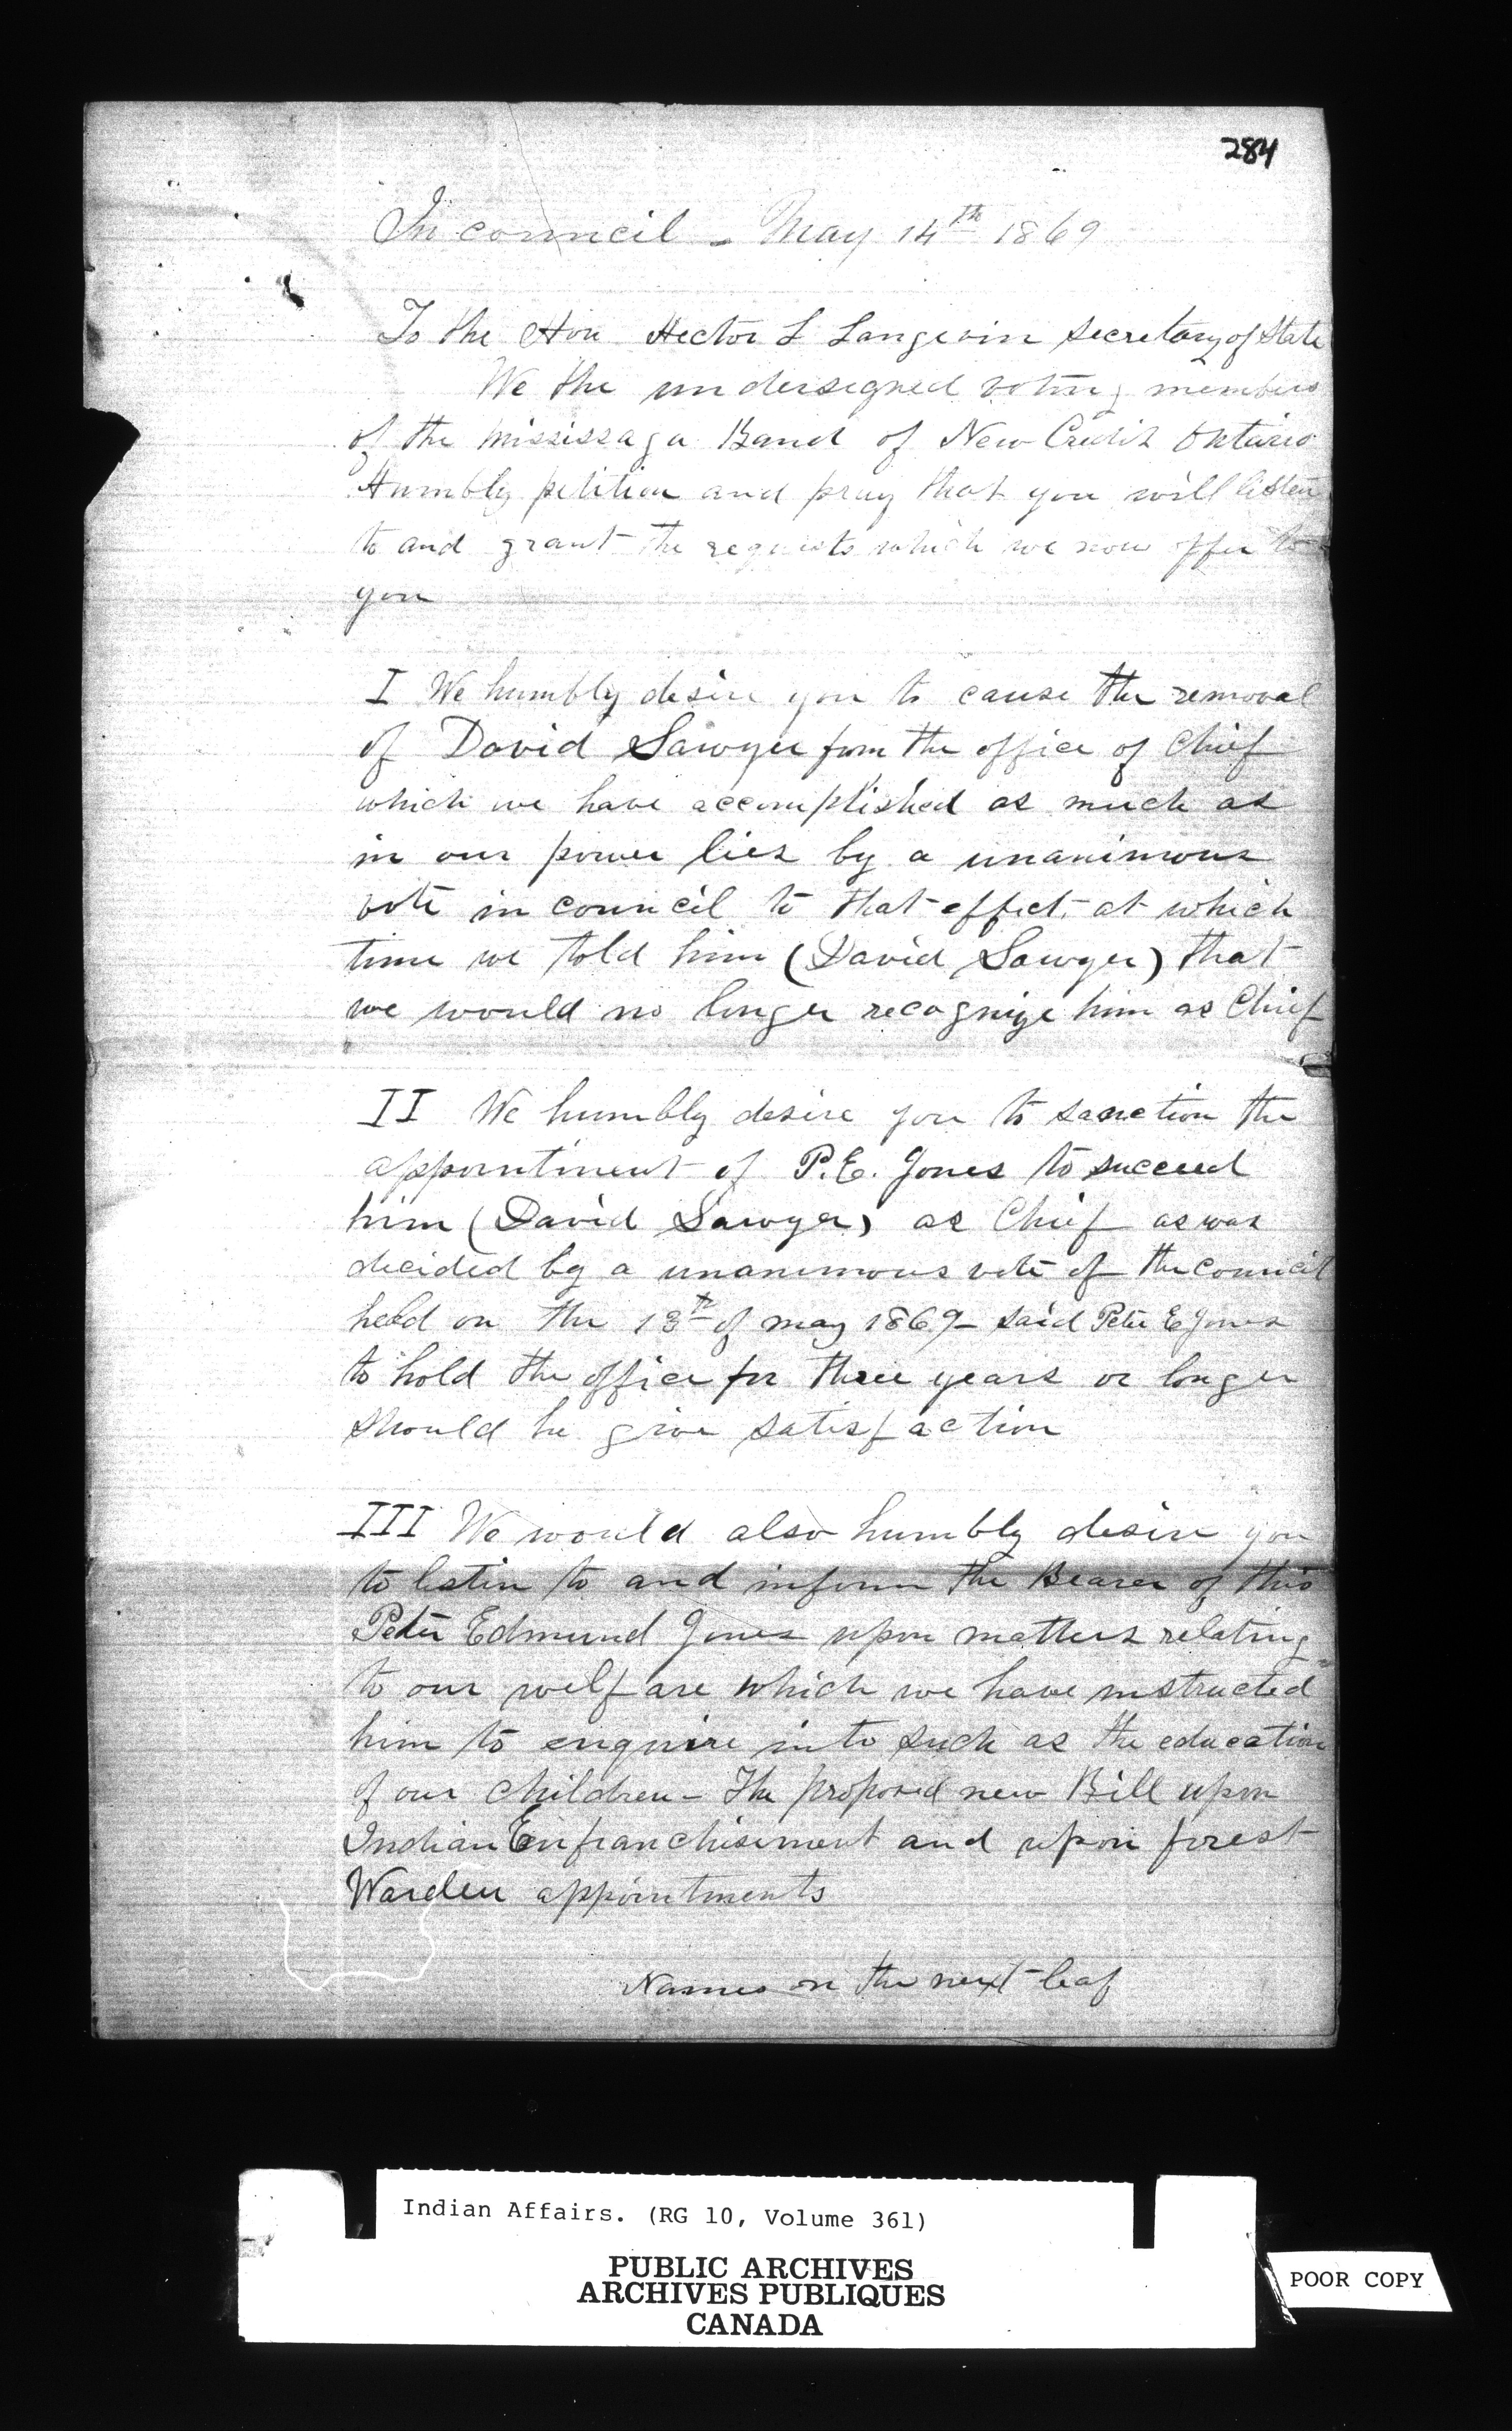 284
In council - May 14th 1869
To the Hon Hector L Langevin Secretary of State
We the undersigned voting members
of the Mississaga Band of New Credit Ontario
Humbly petition and pray that you will listen
to and grant the requests which we now offer to
you
I We humbly desire you to cause the removal
of David Sawyer from the office of Chief
which we have accomplished as much as
in our power lies by a unanimous
vote in council to that effect, at which
time we told him (David Sawyer) that
we would no longer recognize him as Chief
II We humbly desire you to sanction the
appointment of P.E. Jones to succeed
him (David Sawyer) as Chief as was
decided by a unanimous vote of the council
held on the 13th of may 1869 - said Peter E Jones
to hold the office for three years or longer
should he give satisfaction
III We would also humbly desire you
to listin to and inform the Bearer of this
Peter Edmund Jones upon matters relating
to our welfare which we have instructed
him to enquire into such as the education
of our children - The proposed new Bill upon
Indian Enfranchisement and upon forest
Warden appointments
Names on the next leaf
Indian Affairs. (RG 10, Volume 361)
PUBLIC ARCHIVES
ARCHIVES PUBLIQUES
CANADA
POOR COPY